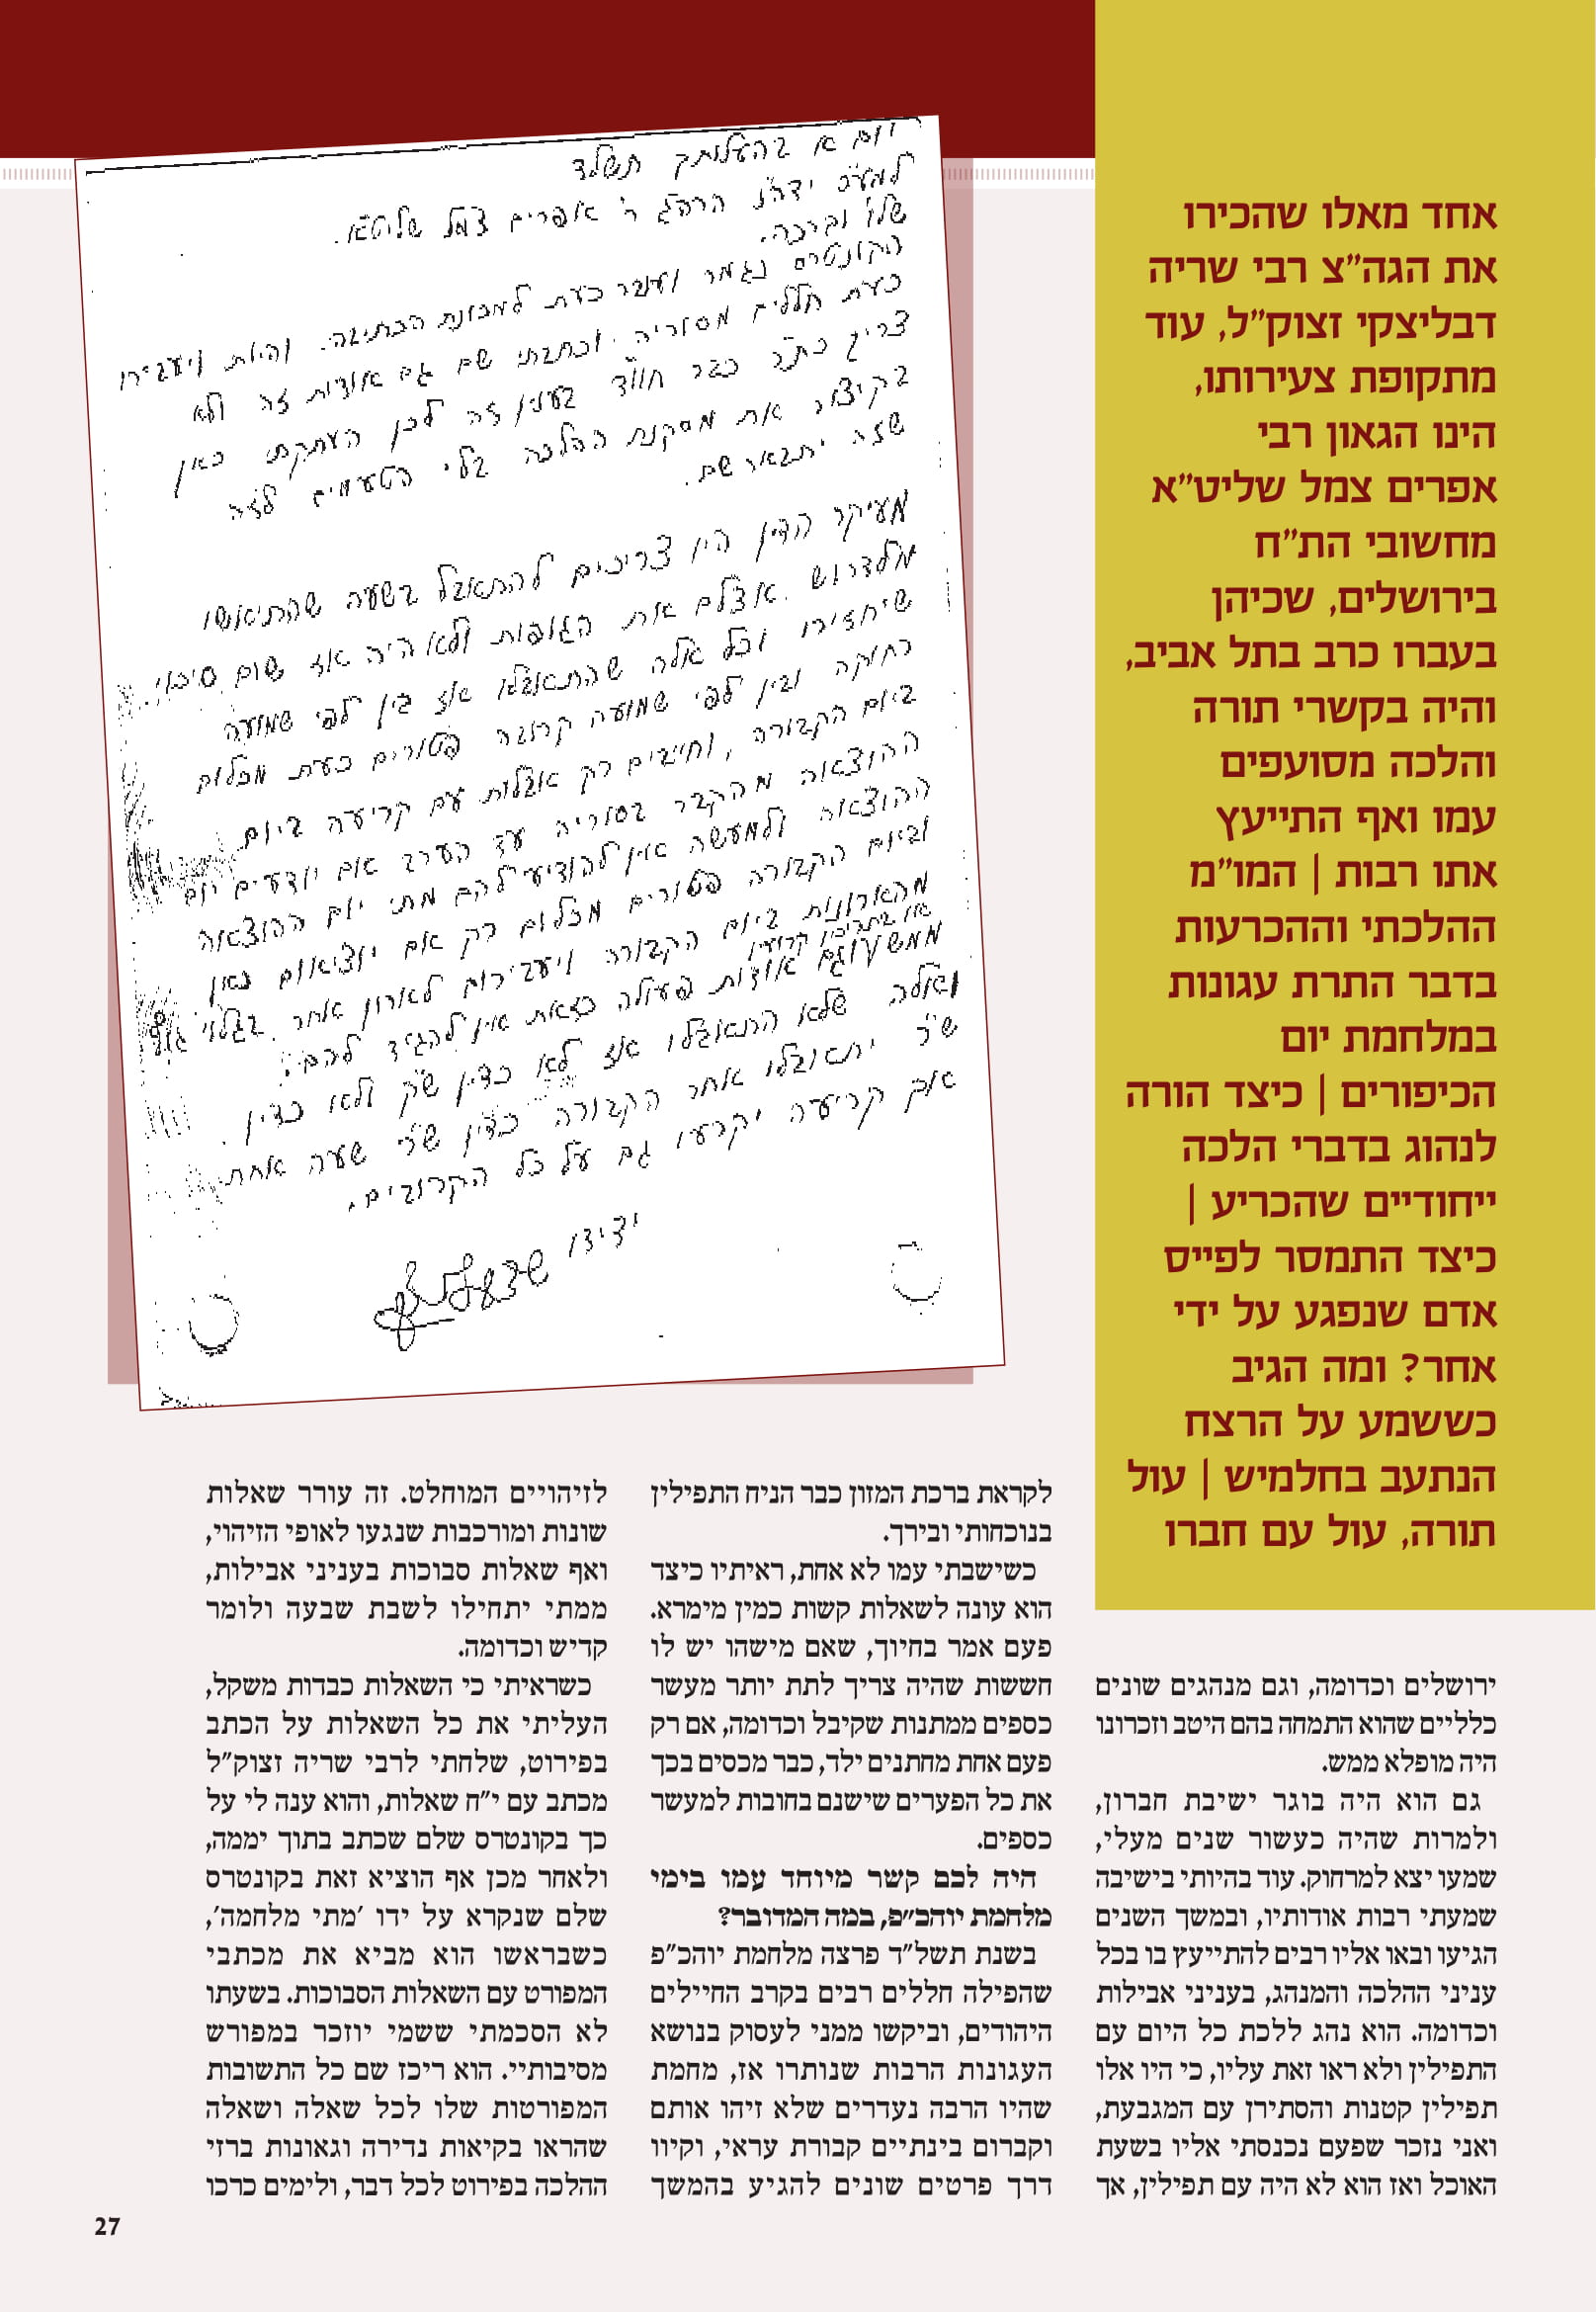 אחד מאלו שהכירו
את הגה"צ רבי שריה
דבליצקי זצוק"ל, עוד
מתקופת צעירותו,
הינו הגאון רבי
אפרים צמל שליט"א
מחשובי הת"ח
בירושלים, שכיהן
בעברו כרב בתל אביב,
והיה בקשרי תורה
והלכה מסועפים
עמו ואף התייעץ
אתו רבות | המו"מ
ההלכתי וההכרעות
בדבר התרת עגונות
במלחמת יום
הכיפורים | כיצד הורה
לנהוג בדברי הלכה
ייחודיים שהכריע |
כיצד התמסר לפייס
אדם שנפגע על ידי
אחר? ומה הגיב
כששמע על הרצח
הנתעב בחלמיש | עול
תורה, עול עם חברו
יום א בהעלותך תשלד
למע"כ ידה"נ הרה"ג ר' אפרים צמל שליט"א.
שלו' וברכה.
הקונטרס נגמר ועובר כעת למכונת הכתיבה. והיות ויעבירו
כעת חללים מסוריה וכתבתי שם גם אודות זה ולא
צריך כת"ר כבר חוו"ד בענין זה לכן העתקתי כאן
בקיצור את מסקנת ההלכה בלי הטעמים לזה
שזה יתבאר שם.
מעיקר הדין היו צריכים להתאבל בשעה שהתיאשו
מלדרוש אצלם את הגופות ולא היה אז שום סיכוי
שיחזירו וכל אלה שהתאבלו אז בין לפי שמועה
רחוקה ובין לפי שמועה קרובה פטורים כעת מכלום
ביום הקבורה, וחייבים רק אבלות עם קריעה ביום
ההוצאה מהקבר בסוריה עד הערב אם יודעים יום
ההוצאה ולמעשה אין להודיע להם מתי יום ההוצאה
וביום הקבורה פטורים מכלום רק אם יוציאום כאן
מהארונות ביום הקבורה ויעבירום לארון אחר בגלוי גוף
או בתכריכין קרועין
ממש וגם אודות פעולה כזאת אין להגיד להם.
ואלה שלא התאבלו אז לא כדין ש"ק ולא כדין
ש"ר יתאבלו אחר הקבורה כדין ש"ר שעה אחת
אם קריעה יקרעו גם על כל הקרובים.
ידידו
ירושלים וכדומה, וגם מנהגים שונים
כלליים שהוא התמחה בהם היטב וזכרונו
היה מופלא ממש.
גם הוא היה בוגר ישיבת חברון,
ולמרות שהיה כעשור שנים מעלי,
שמעו יצא למרחוק. עוד בהיותי בישיבה
שמעתי רבות אודותיו, ובמשך השנים
הגיעו ובאו אליו רבים להתייעץ בו בכל
עניני ההלכה והמנהג, בעניני אבילות
וכדומה. הוא נהג ללכת כל היום עם
התפילין ולא ראו זאת עליו, כי היו אלו
תפילין קטנות והסתירן עם המגבעת,
ואני נזכר שפעם נכנסתי אליו בשעת
האוכל ואז הוא לא היה עם תפילין, אך
לקראת ברכת המזון כבר הניח התפילין
בנוכחותי ובירך.
כשישבתי עמו לא אחת, ראיתיו כיצד
הוא עונה לשאלות קשות כמין מימרא.
פעם אמר בחיוך, שאם מישהו יש לו
חששות שהיה צריך לתת יותר מעשר
כספים ממתנות שקיבל וכדומה, אם רק
פעם אחת מחתנים ילד, כבר מכסים בכך
את כל הפערים שישנם בחובות למעשר
כספים.
היה לכם קשר מיוחד עמו בימי
מלחמת יוהכ"פ, במה המדובר?
בשנת תשל"ד פרצה מלחמת יוהכ"פ
שהפילה חללים רבים בקרב החיילים
היהודים, וביקשו ממני לעסוק בנושא
העגונות הרבות שנותרו אז, מחמת
שהיו הרבה נעדרים שלא זיהו אותם
וקברום בינתיים קבורת עראי, וקיוו
דרך פרטים שונים להגיע בהמשך
לזיהויים המוחלט. זה עורר שאלות
שונות ומורכבות שנגעו לאופי הזיהוי,
ואף שאלות סבוכות בעניני אבילות,
ממתי יתחילו לשבת שבעה ולומר
קדיש וכדומה.
כשראיתי כי השאלות כבדות משקל,
העליתי את כל השאלות על הכתב
בפירוט, שלחתי לרבי שריה זצוק"ל
מכתב עם י"ח שאלות, והוא ענה לי על
כך בקונטרס שלם שכתב בתוך יממה,
ולאחר מכן אף הוציא זאת בקונטרס
שלם שנקרא על ידו 'מתי מלחמה',
כשבראשו הוא מביא את מכתבי
המפורט עם השאלות הסבוכות. בשעתו
לא הסכמתי ששמי יוזכר במפורש
מסיבותיי. הוא ריכז שם כל התשובות
המפורטות שלו לכל שאלה ושאלה
שהראו בקיאות נדירה וגאונות ברזי
ההלכה בפירוט לכל דבר, ולימים כרכו
27